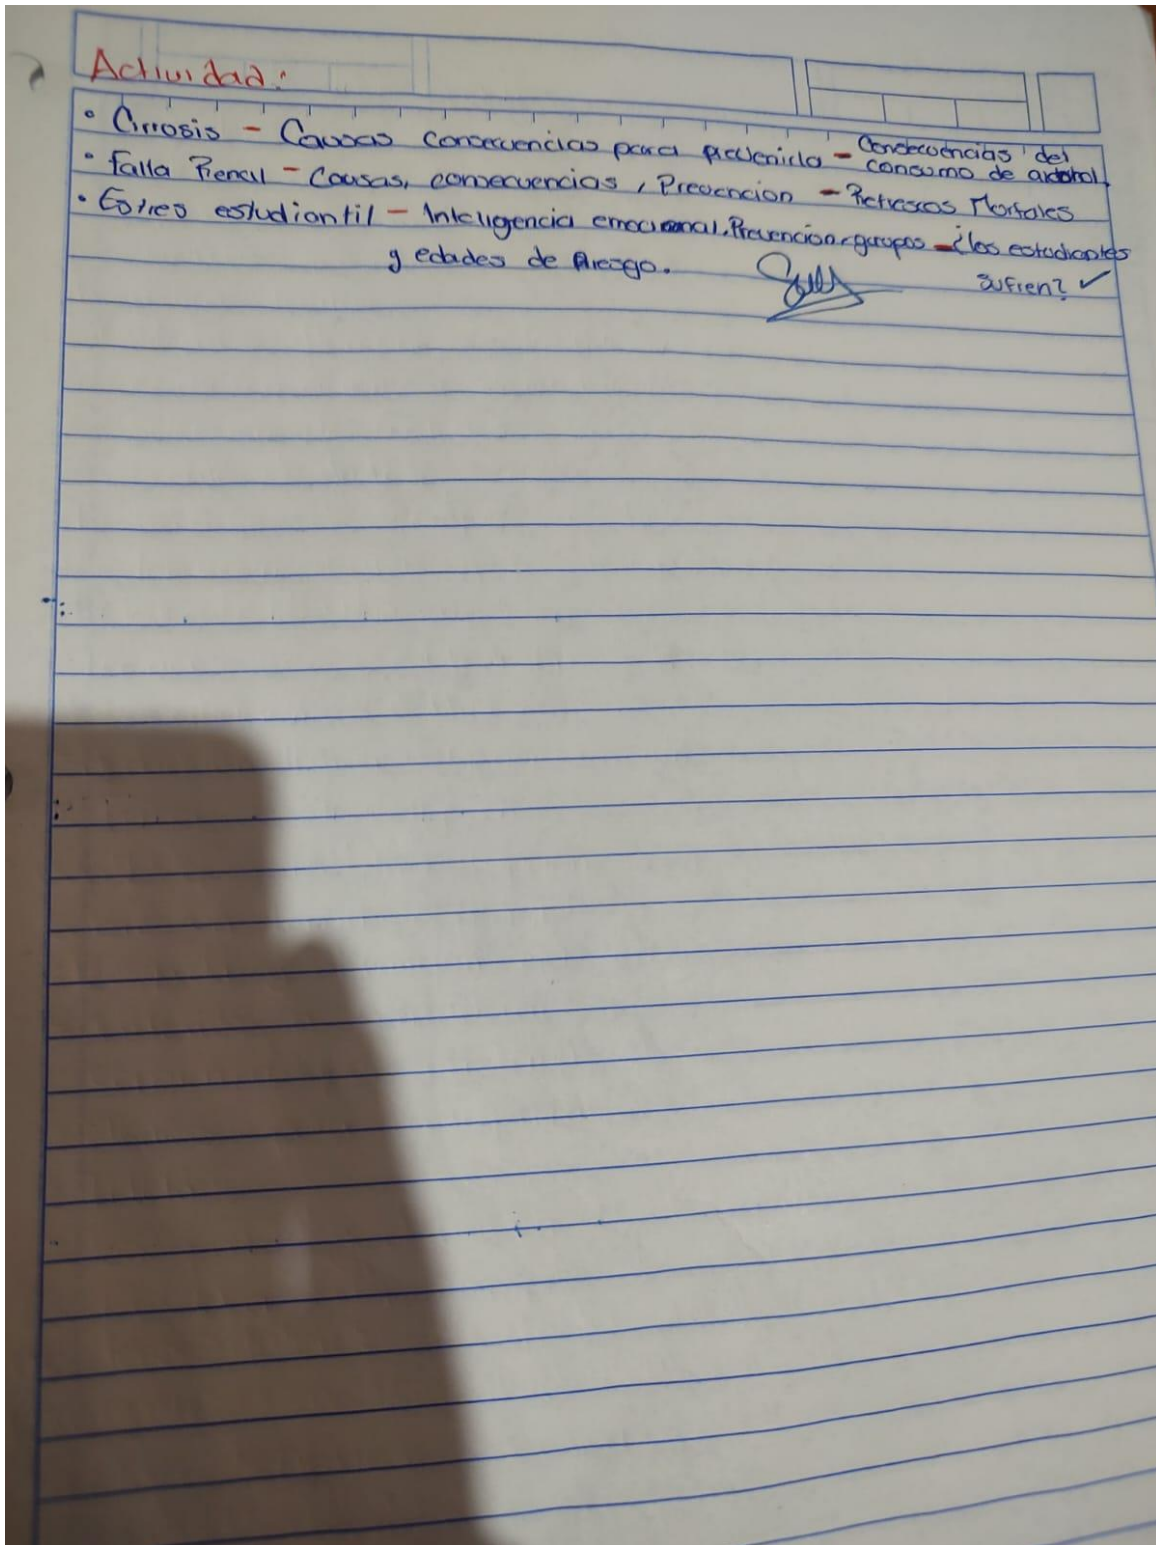 Actividad:
• Cirrosis - Causas consecuencias para prevenirla - Consecuencias del consumo de alcohol.
• Falla Renal - Causas, consecuencias, Prevencion - Refrescos Mortales
• Estres estudiantil - Inteligencia emocional. Prevencion, grupos - ¿los estudiantes
y edades de Riesgo. sufren? ✓